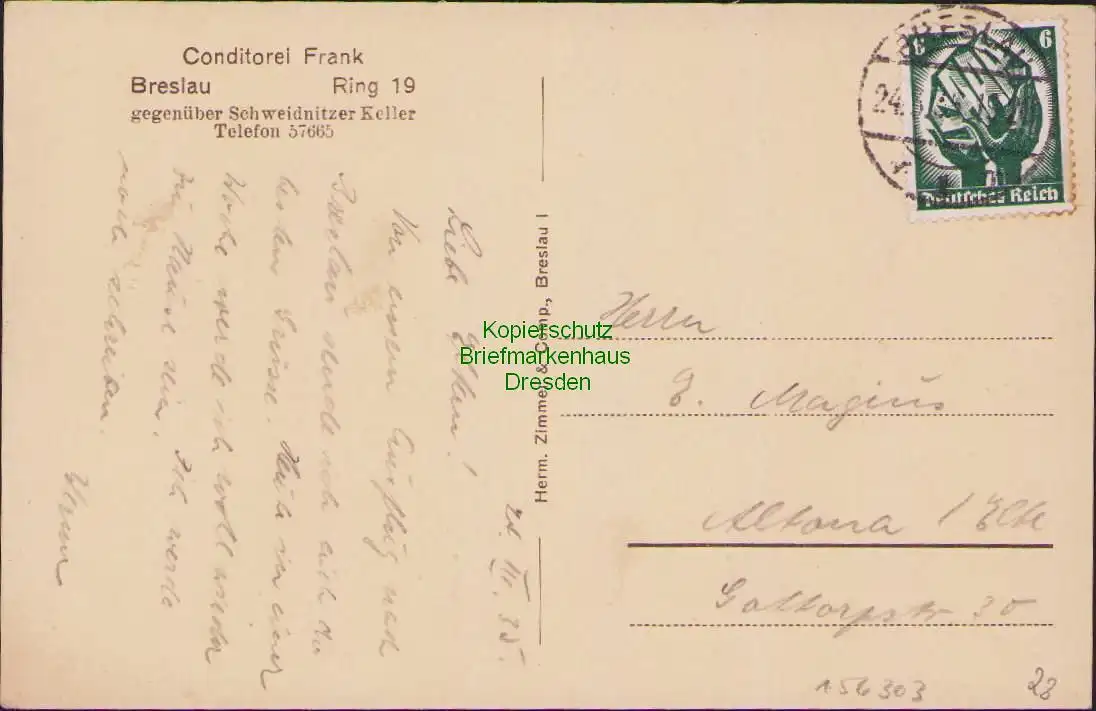 Conditorei Frank
Breslau Ring 19
gegenüber Schweidnitzer Keller
Telefon 57665
BRESLAU
24.
6 6
Deutsches Reich
Herm. Zimmer & Comp., Breslau I
Kopierschutz
Briefmarkenhaus
Dresden
Herrn
Magius
Altona / Elbe
Gottorpstr. 30
Liebe Eltern!
Von einem Ausflug nach
Breslau sende ich euch die
besten Grüsse. Heute in einer
Woche werde ich wohl wieder
zu Hause sein. Ich werde
noch schreiben.
A56303
28